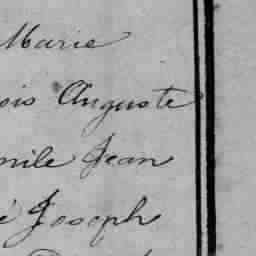 Marie
ois Auguste
mile Jean
é Joseph